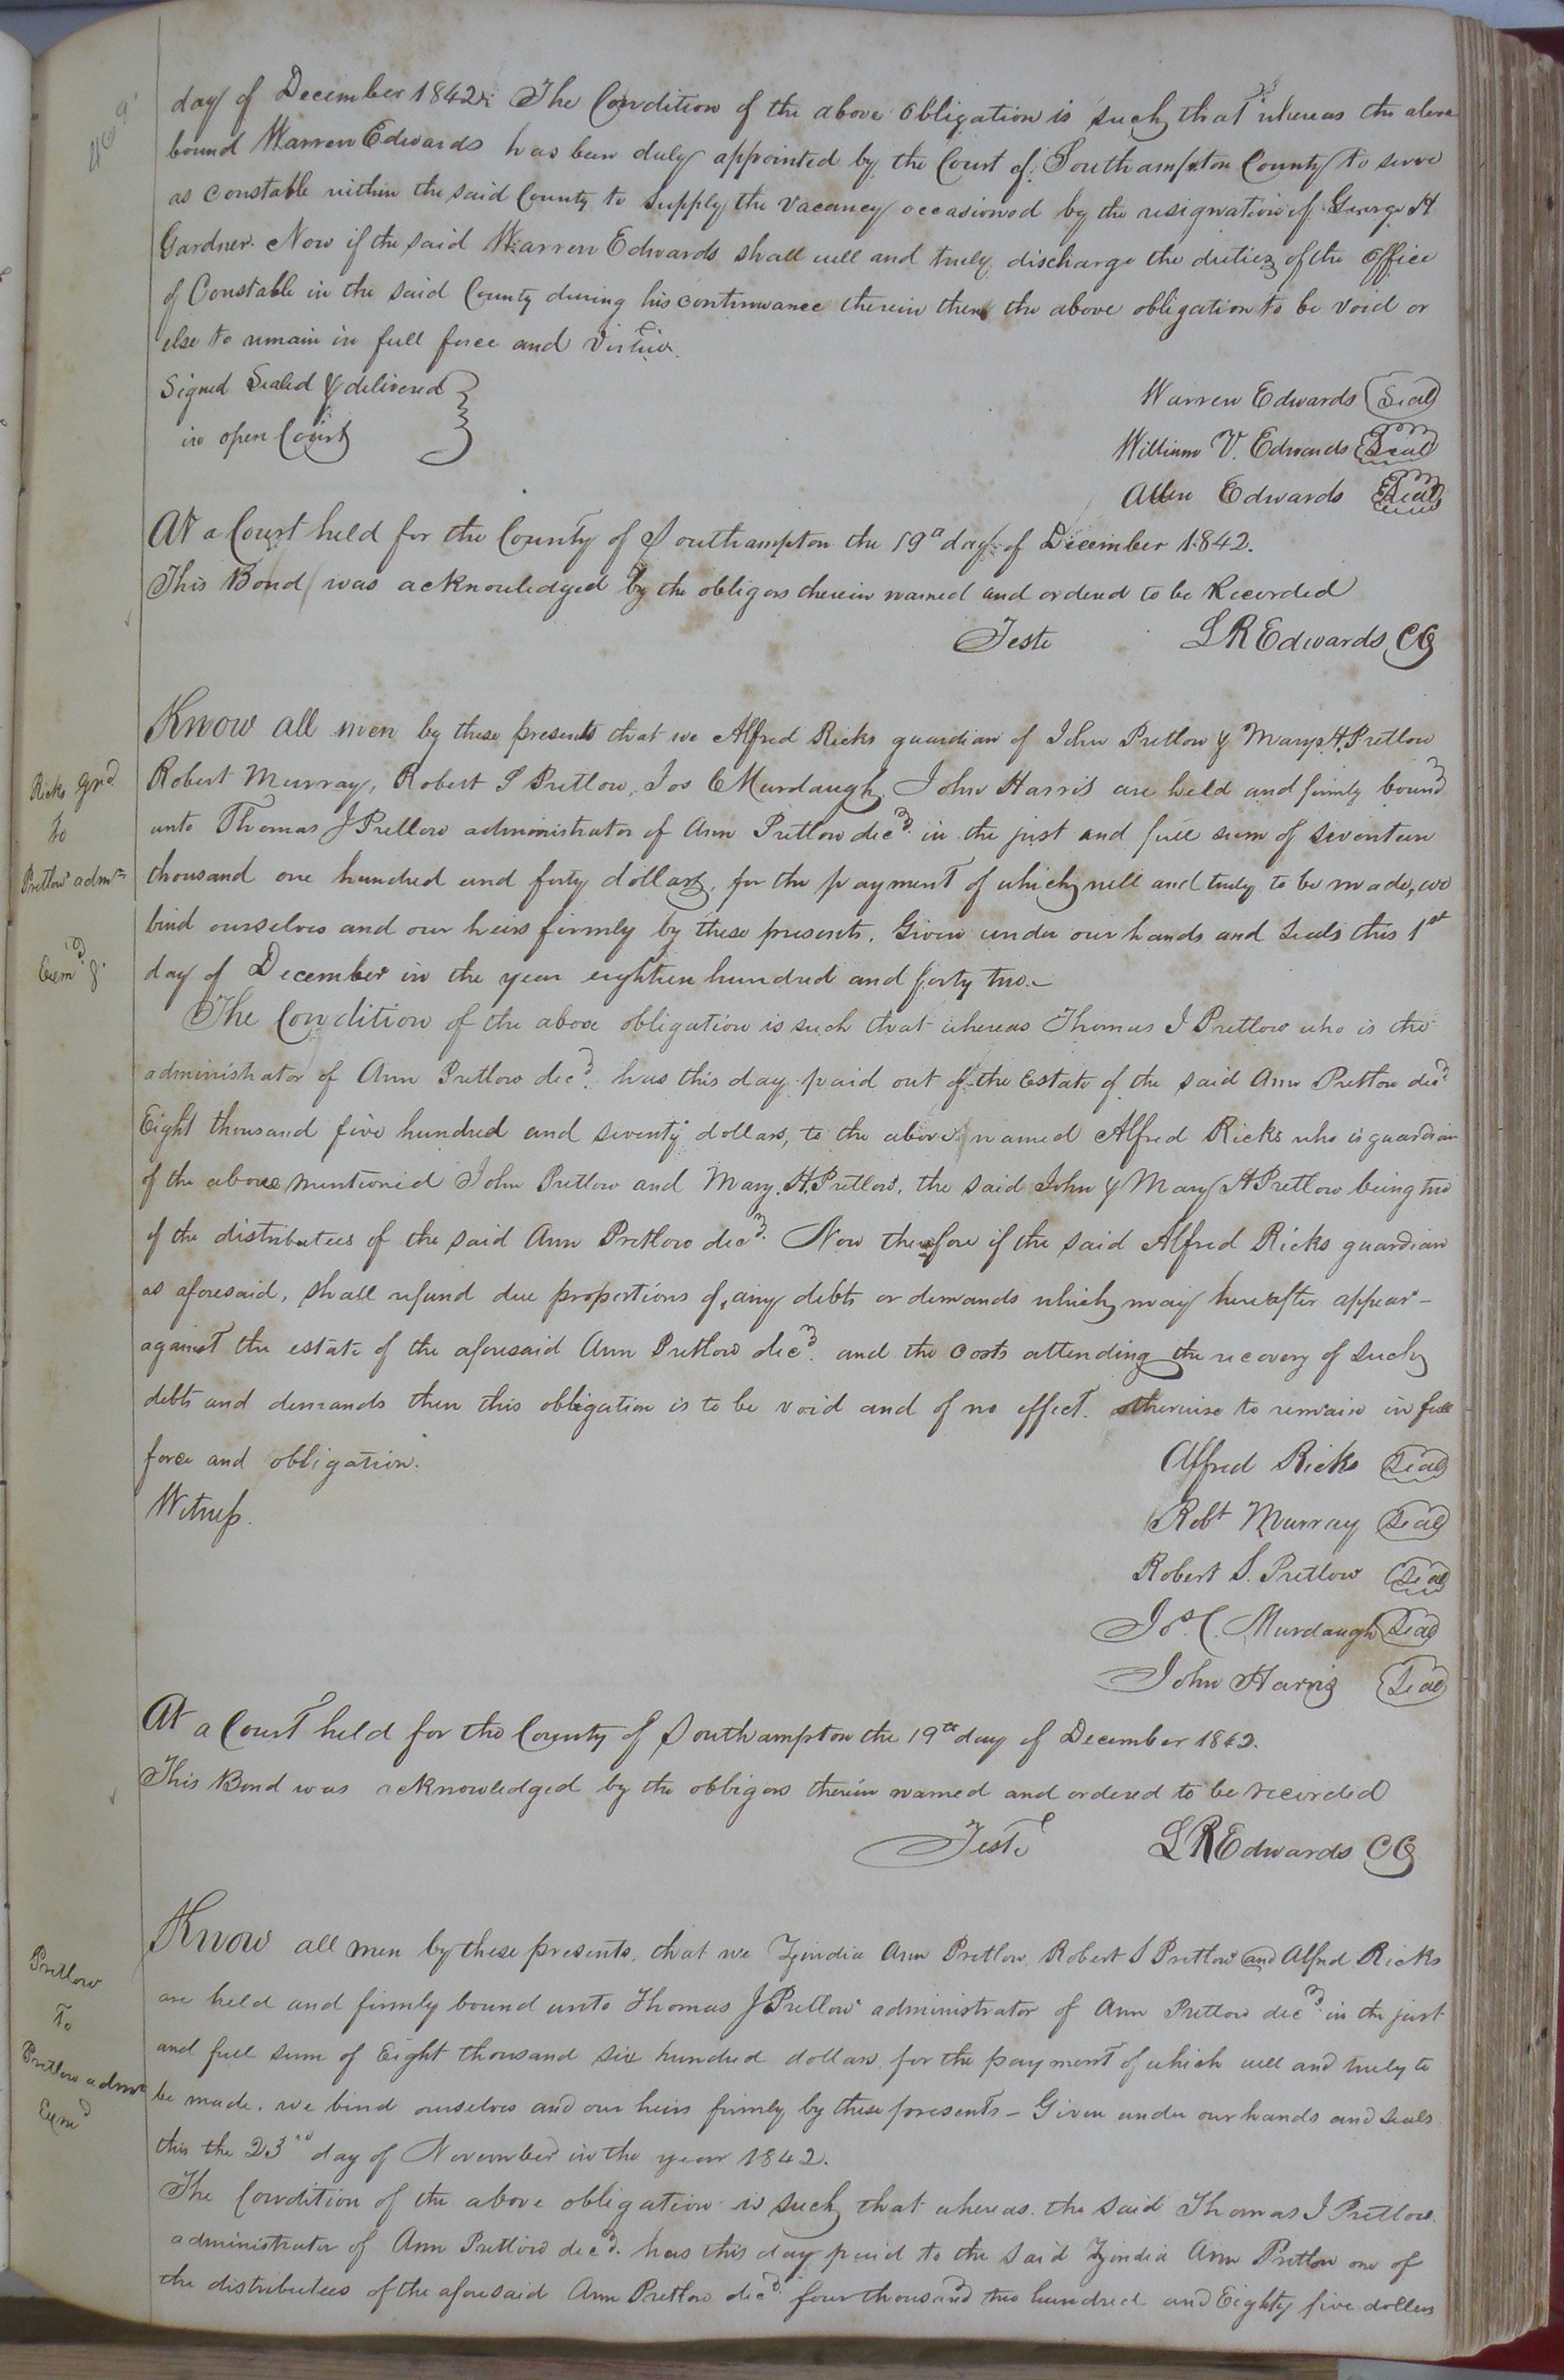 469
day of December 1842. The Condition of the above obligation is such that whereas the above
bound Warren Edwards has been duly appointed by the Court of Southampton County to serve
as constable within the said County to supply the vacancy occasioned by the resignation of George H
Gardner. Now if the said Warren Edwards shall well and truly discharge the duties of the office
of Constable in the said County during his continuance therein then the above obligation to be void or
else to remain in full force and virtue.
Signed Sealed & delivered
in open Court
Warren Edwards Seal
William V. Edwards Seal
Allen Edwards Seal
At a Court held for the County of Southampton the 19th day of December 1842.
This Bond was acknowledged by the obligors therein named and ordered to be Recorded
Teste L R Edwards CC
Ricks Grd.
To
Pretlow admr
Exmd
Know all men by these presents that we Alfred Ricks guardian of John Pretlow & Mary H. Pretlow
Robert Murray, Robert S Pretlow, Jos C Murdaugh, John Harris are held and firmly bound
unto Thomas J Pretlow administrator of Ann Pretlow decd. in the just and full sum of seventeen
thousand one hundred and forty dollars, for the payment of which well and truly to be made, we
bind ourselves and our heirs firmly by these presents. Given under our hands and seals this 1st
day of December in the year eighteen hundred and forty two.–
The Condition of the above obligation is such that whereas Thomas J Pretlow who is the
administrator of Ann Pretlow decd. has this day paid out of the Estate of the said Ann Pretlow decd.
Eight thousand five hundred and seventy dollars, to the above named Alfred Ricks who is guardian
of the above mentioned John Pretlow and Mary. H. Pretlow, the said John & Mary H Pretlow being two
of the distributees of the said Ann Pretlow decd. Now therefore if the said Alfred Ricks guardian
as aforesaid, shall refund due proportions of any debts or demands which may hereafter appear –
against the estate of the aforesaid Ann Pretlow decd. and the costs attending the recovery of such
debts and demands then this obligation is to be void and of no effect. otherwise to remain in full
force and obligation.
Witness.
Alfred Ricks Seal
Robt Murray Seal
Robert S. Pretlow Seal
Jos. C. Murdaugh Seal
John Harris Seal
At a Court held for the County of Southampton the 19th day of December 1842.
This Bond was acknowledged by the obligors therein named and ordered to be recorded
Teste L R Edwards CC
Pretlow
To
Pretlow admr
Exmd
Know all men by these presents, that we Zindia Ann Pretlow, Robert S Pretlow and Alfred Ricks
are held and firmly bound unto Thomas J Pretlow administrator of Ann Pretlow decd. in the just
and full sum of Eight thousand six hundred dollars, for the payment of which well and truly to
be made, we bind ourselves and our heirs firmly by these presents – Given under our hands and seals
this the 23rd day of November in the year 1842.
The Condition of the above obligation is such that whereas the said Thomas J Pretlow
administrator of Ann Pretlow decd. has this day paid to the said Zindia Ann Pretlow one of
the distributees of the aforesaid Ann Pretlow decd. four thousand two hundred and Eighty five dollars